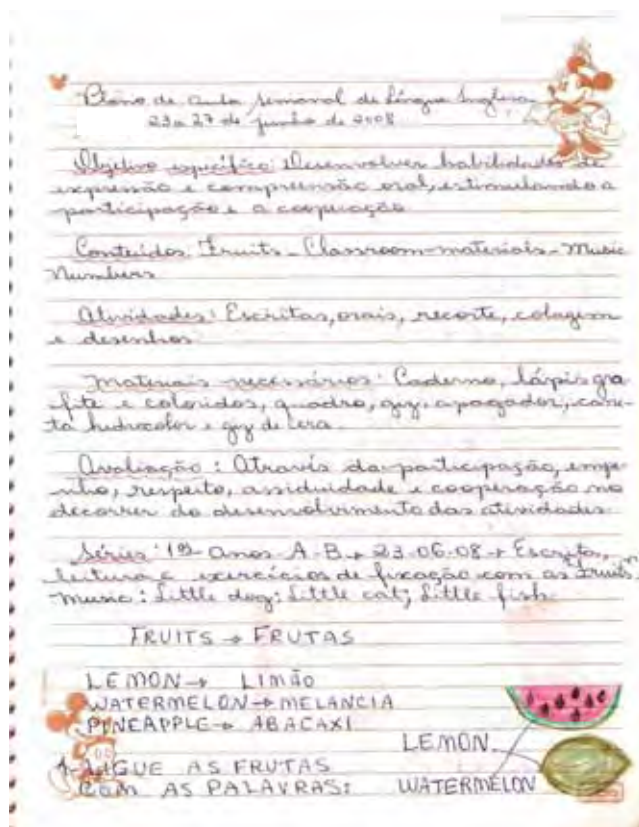 Plano de aula semanal de Língua Inglesa
23 a 27 de junho de 2008
Objetivo específico: Desenvolver habilidades de
expressão e compreensão oral, estimulando a
participação e a cooperação
Conteúdos: Fruits - Classroom-materials - Music
Numbers
Atividades: Escritas, orais, recorte, colagem
e desenhos
Materiais necessários: Caderno, lápis gra
fite e coloridos, quadro, giz, apagador, cane-
ta hidrocolor e giz de cera.
Avaliação: Através da participação, empe
nho, respeito, assiduidade e cooperação no
decorrer do desenvolvimento das atividades.
Séries: 1ºs Anos A-B → 23-06-08 → Escrita,
leitura e exercícios de fixação com as Fruits.
Music: Little dog; Little cat; Little fish.
FRUITS → FRUTAS
LEMON → LIMÃO
WATERMELON → MELANCIA
PINEAPPLE → ABACAXI
LEMON
1-LIGUE AS FRUTAS
COM AS PALAVRAS: WATERMELON